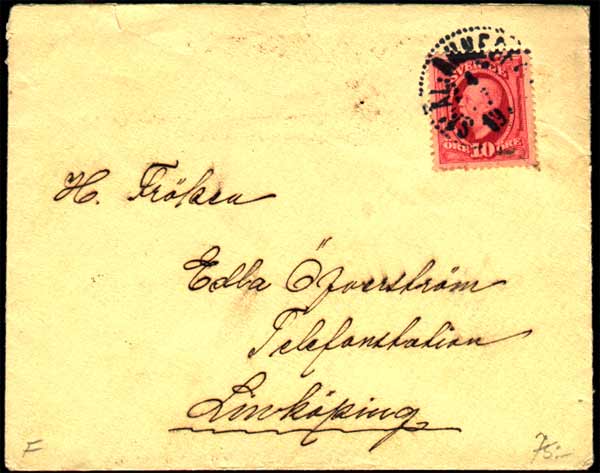 SVERIGE
10
ÖRE ÖRE
H. Fröken
Edba Öfverström
Telefonstation
Linköping
F
75:-